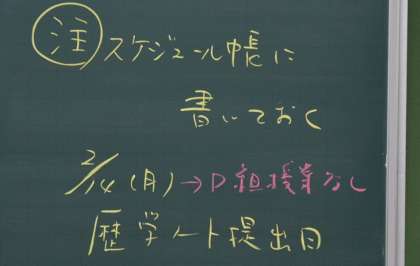 注 スケジュール帳に
書いておく
2/14(月)→D組授業なし
歴学ノート提出日